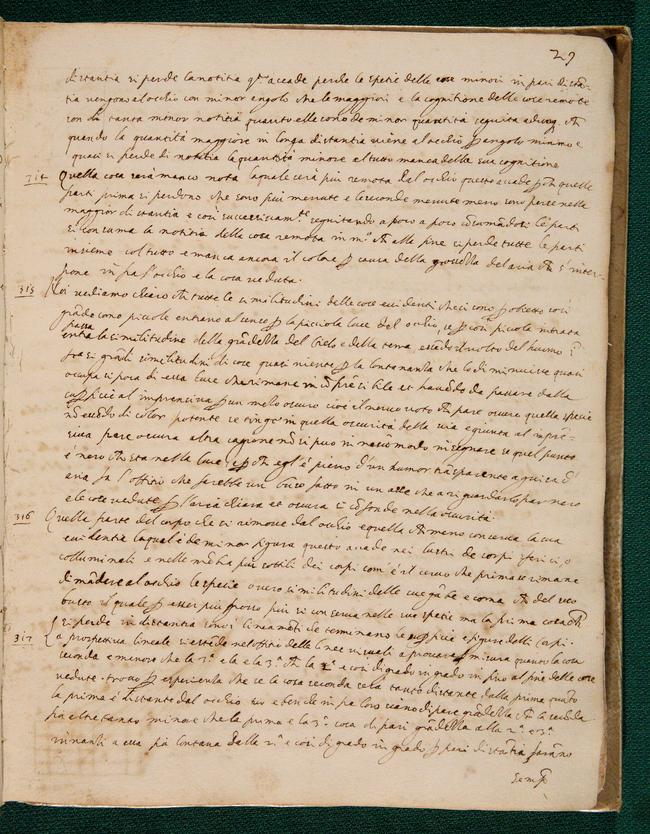 29
distantia si perde la notitia qto accade perche le spetie delle cose minori in pari distan-
tia vengono al ochio con minor angolo che le maggiori e la cognitione delle cose remote
son di tanta minor notitia quanto elle sono de minor quantità seguita adunq ch
quando la quantità maggiore in longa distantia viene al ochio p angolo minimo e
quasi si perde di notitia la quantità minore al tutto manca della sua cognitione
314 Quella cosa sarà manco nota laquale sarà più remota dal ochio questo acade p ch quelle
parti prima si perdono che sono più minute e le seconde menute meno sono perse nelle
maggior distantia e così successivamte seguitando a poco a poco cōsumādosi le parti
si consuma la notitia della cosa remota in mo ch alla fine si perde tutte le parti
insieme col tutto e manca ancora il colore p causa della del aria ch s'inter-
pone in fra l'ochio e la cosa veduta.
315 Noi vediamo chiaro ch tutte le similitudini delle cose evidenti che ci sono p obietto così
grāde como piccole entrano al senso p la picciola luce del ochio, se p così picola intrata
passa la similitudine della grādezza del Cielo e della terra, essēdo il volto del huomo ī
fra si grādi similitudini di cose quasi niente p la lontananza che lo diminuisce quasi
occupa si poca di essa luce che rimane incōpresibile et havēdo da passare dalla
supficie al imprensiva p un mezo oscuro cioè il nervo voto ch pare oscuro quella spetie
nō essēdo di color potente se tinge in quella oscurità della via e giunta al impre-
siva pare oscura altra cagione nō si può in nessū modo insegnare se quel punto
è nero ch sta nella luce, p ch egl'è pieno d'un humor trāsparente a guisa d'
aria fa l'offitio che farebbe un buso fatto in un asse che a riguardarlo par nero
e le cose vedute p l'aria chiara et oscura si cōfonde nella oscurità.
316 Quella parte del corpo che si rimove dal ochio è quella ch meno conserva la sua
evidentia laqual è de minor figura questo acade nei lustri de corpi sferici, o
collunnali e nelle mēbra più sottili dei corpi com'è il cervo che prima se rimane
di mādare al ochio le spetie overo similitudini delle sue gābe e corna ch del suo
busto il quale p esser più grosso più si conserva nelle sue spetie ma la prima cosa ch
si perde in distantia sono i lineamēti che terminano le supficie e figure delli corpi.
317 La prospettiva lineale si estēde nel offitio delle linee visuali a provare p misura quanto la cosa
seconda è minore che la 1a e la 3a ch la 2a e così di grado in grado in fino al fine delle cose
vedute. trovo p esperienza che se la cosa seconda sarà tanto distante dalla prima quāto
la prima è distante dal ochio che benche in fra loro siano di pare grādezza ch la secōda
fia altretanto minore che la prima e la 3a cosa di pari grādezza alla 2a e 3a
innanti a essa fia lontana dalla 2a e così di grado in grado p pari distātia sarāno
semp